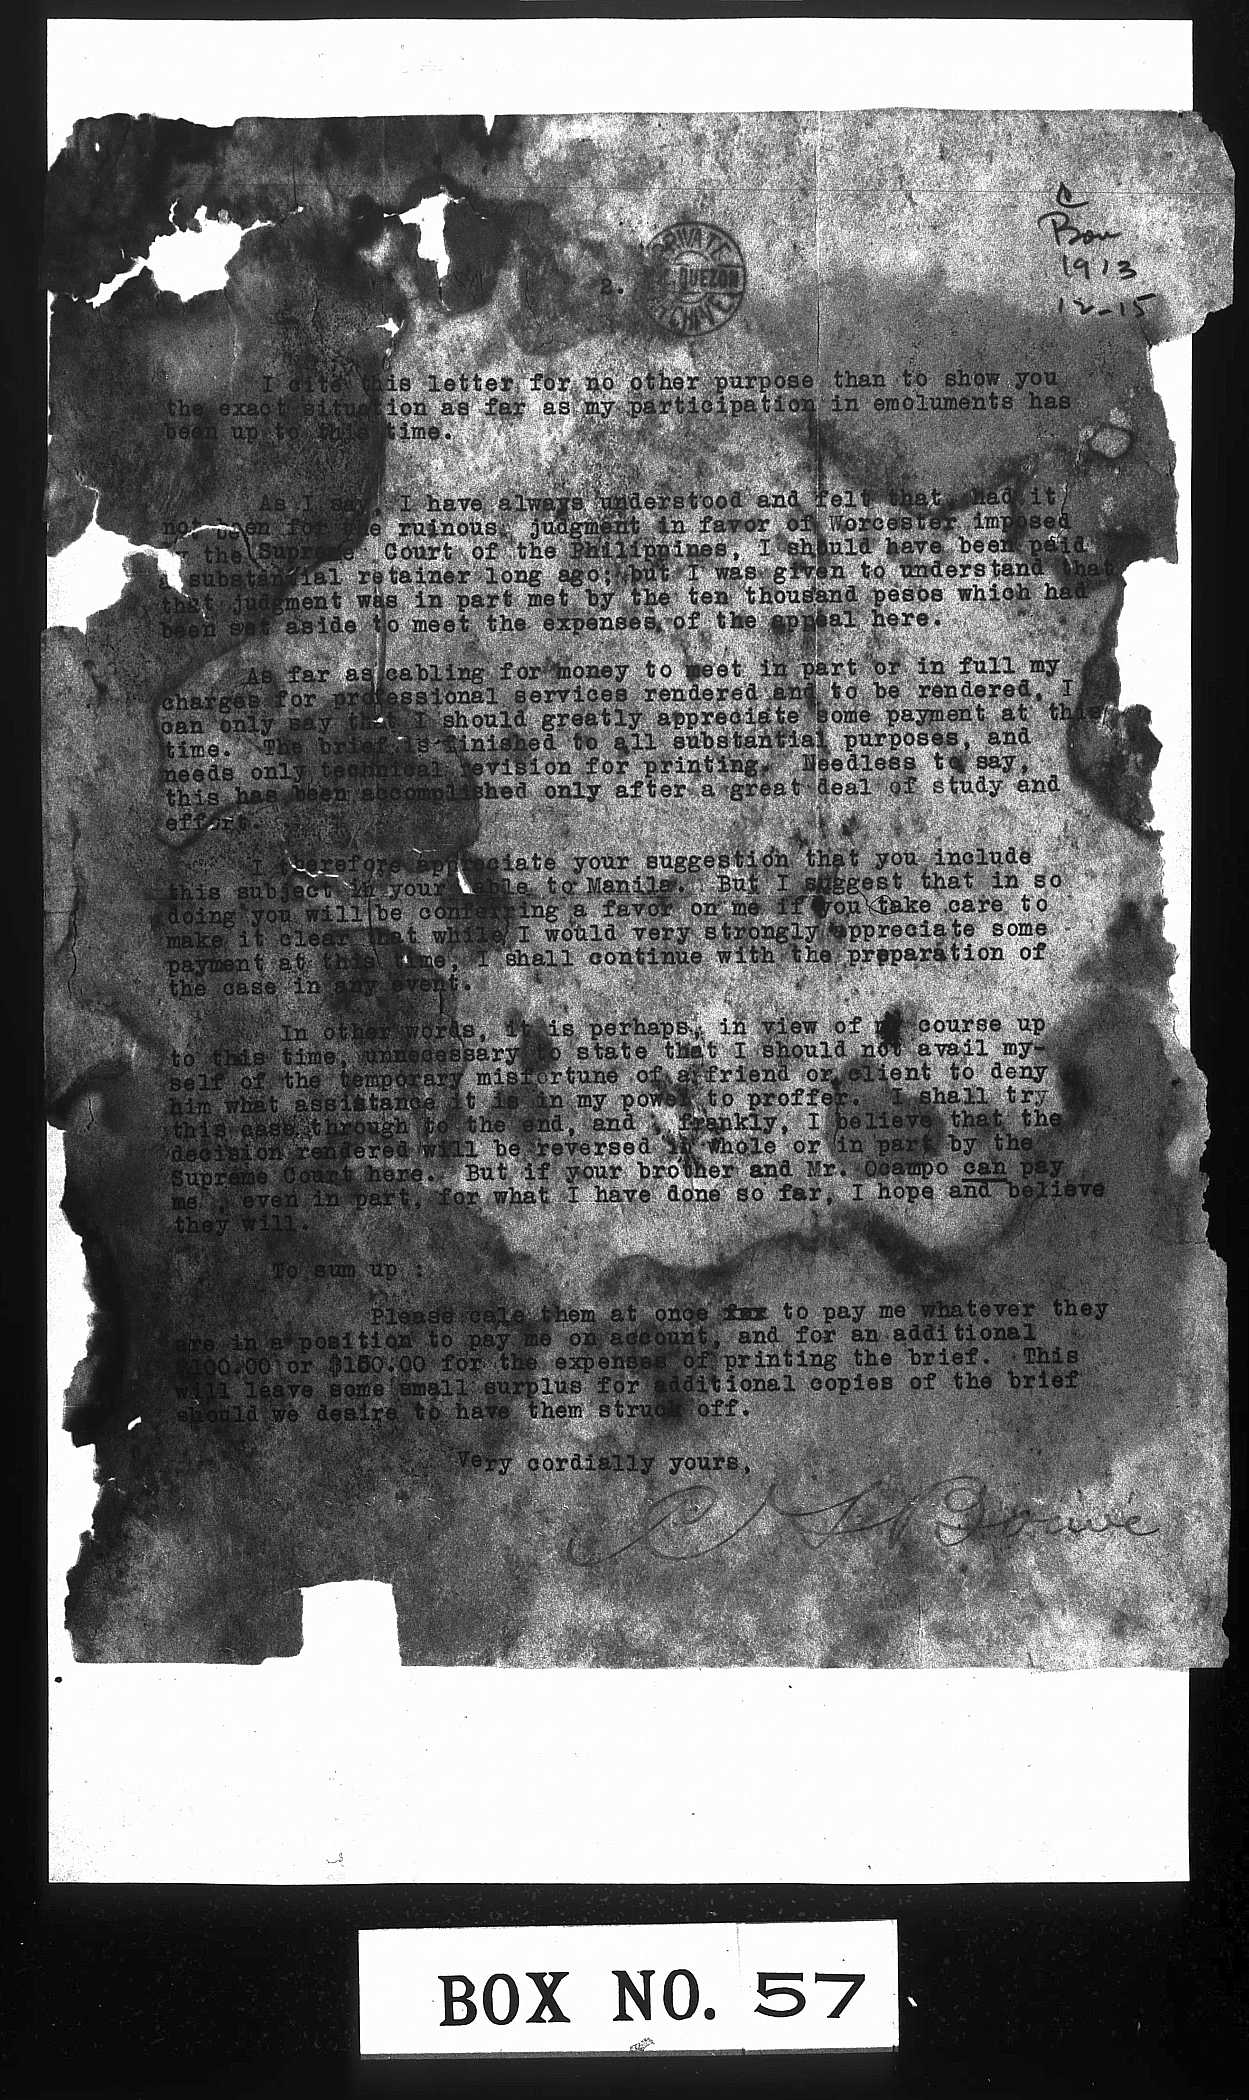 C
Bow
1913
12-15
PRIVATE
QUEZON
ARCHIVES
2.
I cite this letter for no other purpose than to show you
the exact situation as far as my participation in emoluments has
been up to this time.
As I say, I have always understood and felt that, had it
not been for the ruinous judgment in favor of Worcester imposed
by the Supreme Court of the Philippines, I should have been paid
a substantial retainer long ago; but I was given to understand that
that judgment was in part met by the ten thousand pesos which had
been set aside to meet the expenses of the appeal here.
As far as cabling for money to meet in part or in full my
charges for professional services rendered and to be rendered, I
can only say that I should greatly appreciate some payment at this
time. The brief is finished to all substantial purposes, and
needs only technical revision for printing. Needless to say,
this has been accomplished only after a great deal of study and
effort.
I therefore appreciate your suggestion that you include
this subject in your cable to Manila. But I suggest that in so
doing you will be conferring a favor on me if you take care to
make it clear that while I would very strongly appreciate some
payment at this time, I shall continue with the preparation of
the case in any event.
In other words, it is perhaps, in view of my course up
to this time, unnecessary to state that I should not avail my-
self of the temporary misfortune of a friend or client to deny
him what assistance it is in my power to proffer. I shall try
this case through to the end, and , frankly, I believe that the
decision rendered will be reversed in whole or in part by the
Supreme Court here. But if your brother and Mr. Ocampo can pay
me , even in part, for what I have done so far, I hope and believe
they will.
To sum up :
Please cale them at once to pay me whatever they
are in a position to pay me on account, and for an additional
$100.00 or $150.00 for the expenses of printing the brief. This
will leave some small surplus for additional copies of the brief
should we desire to have them struck off.
Very cordially yours,
BOX NO. 57